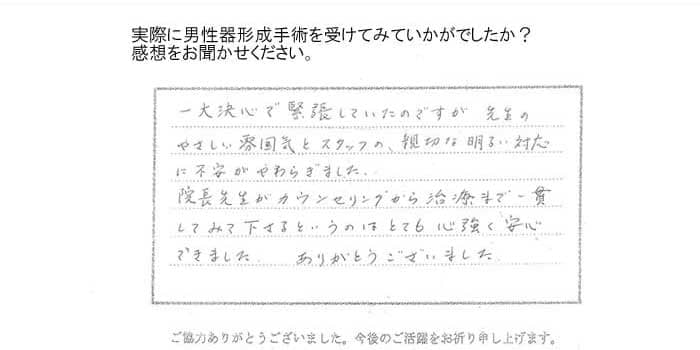 実際に男性器形成手術を受けてみていかがでしたか？
感想をお聞かせください。
一大決心で緊張していたのですが 先生の
やさしい雰囲気とスタッフの、親切な明るい対応
に不安がやわらぎました。
院長先生がカウンセリングから治療まで一貫
してみて下さるというのはとても心強く安心
できました。 ありがとうございました。
ご協力ありがとうございました。今後のご活躍をお祈り申し上げます。